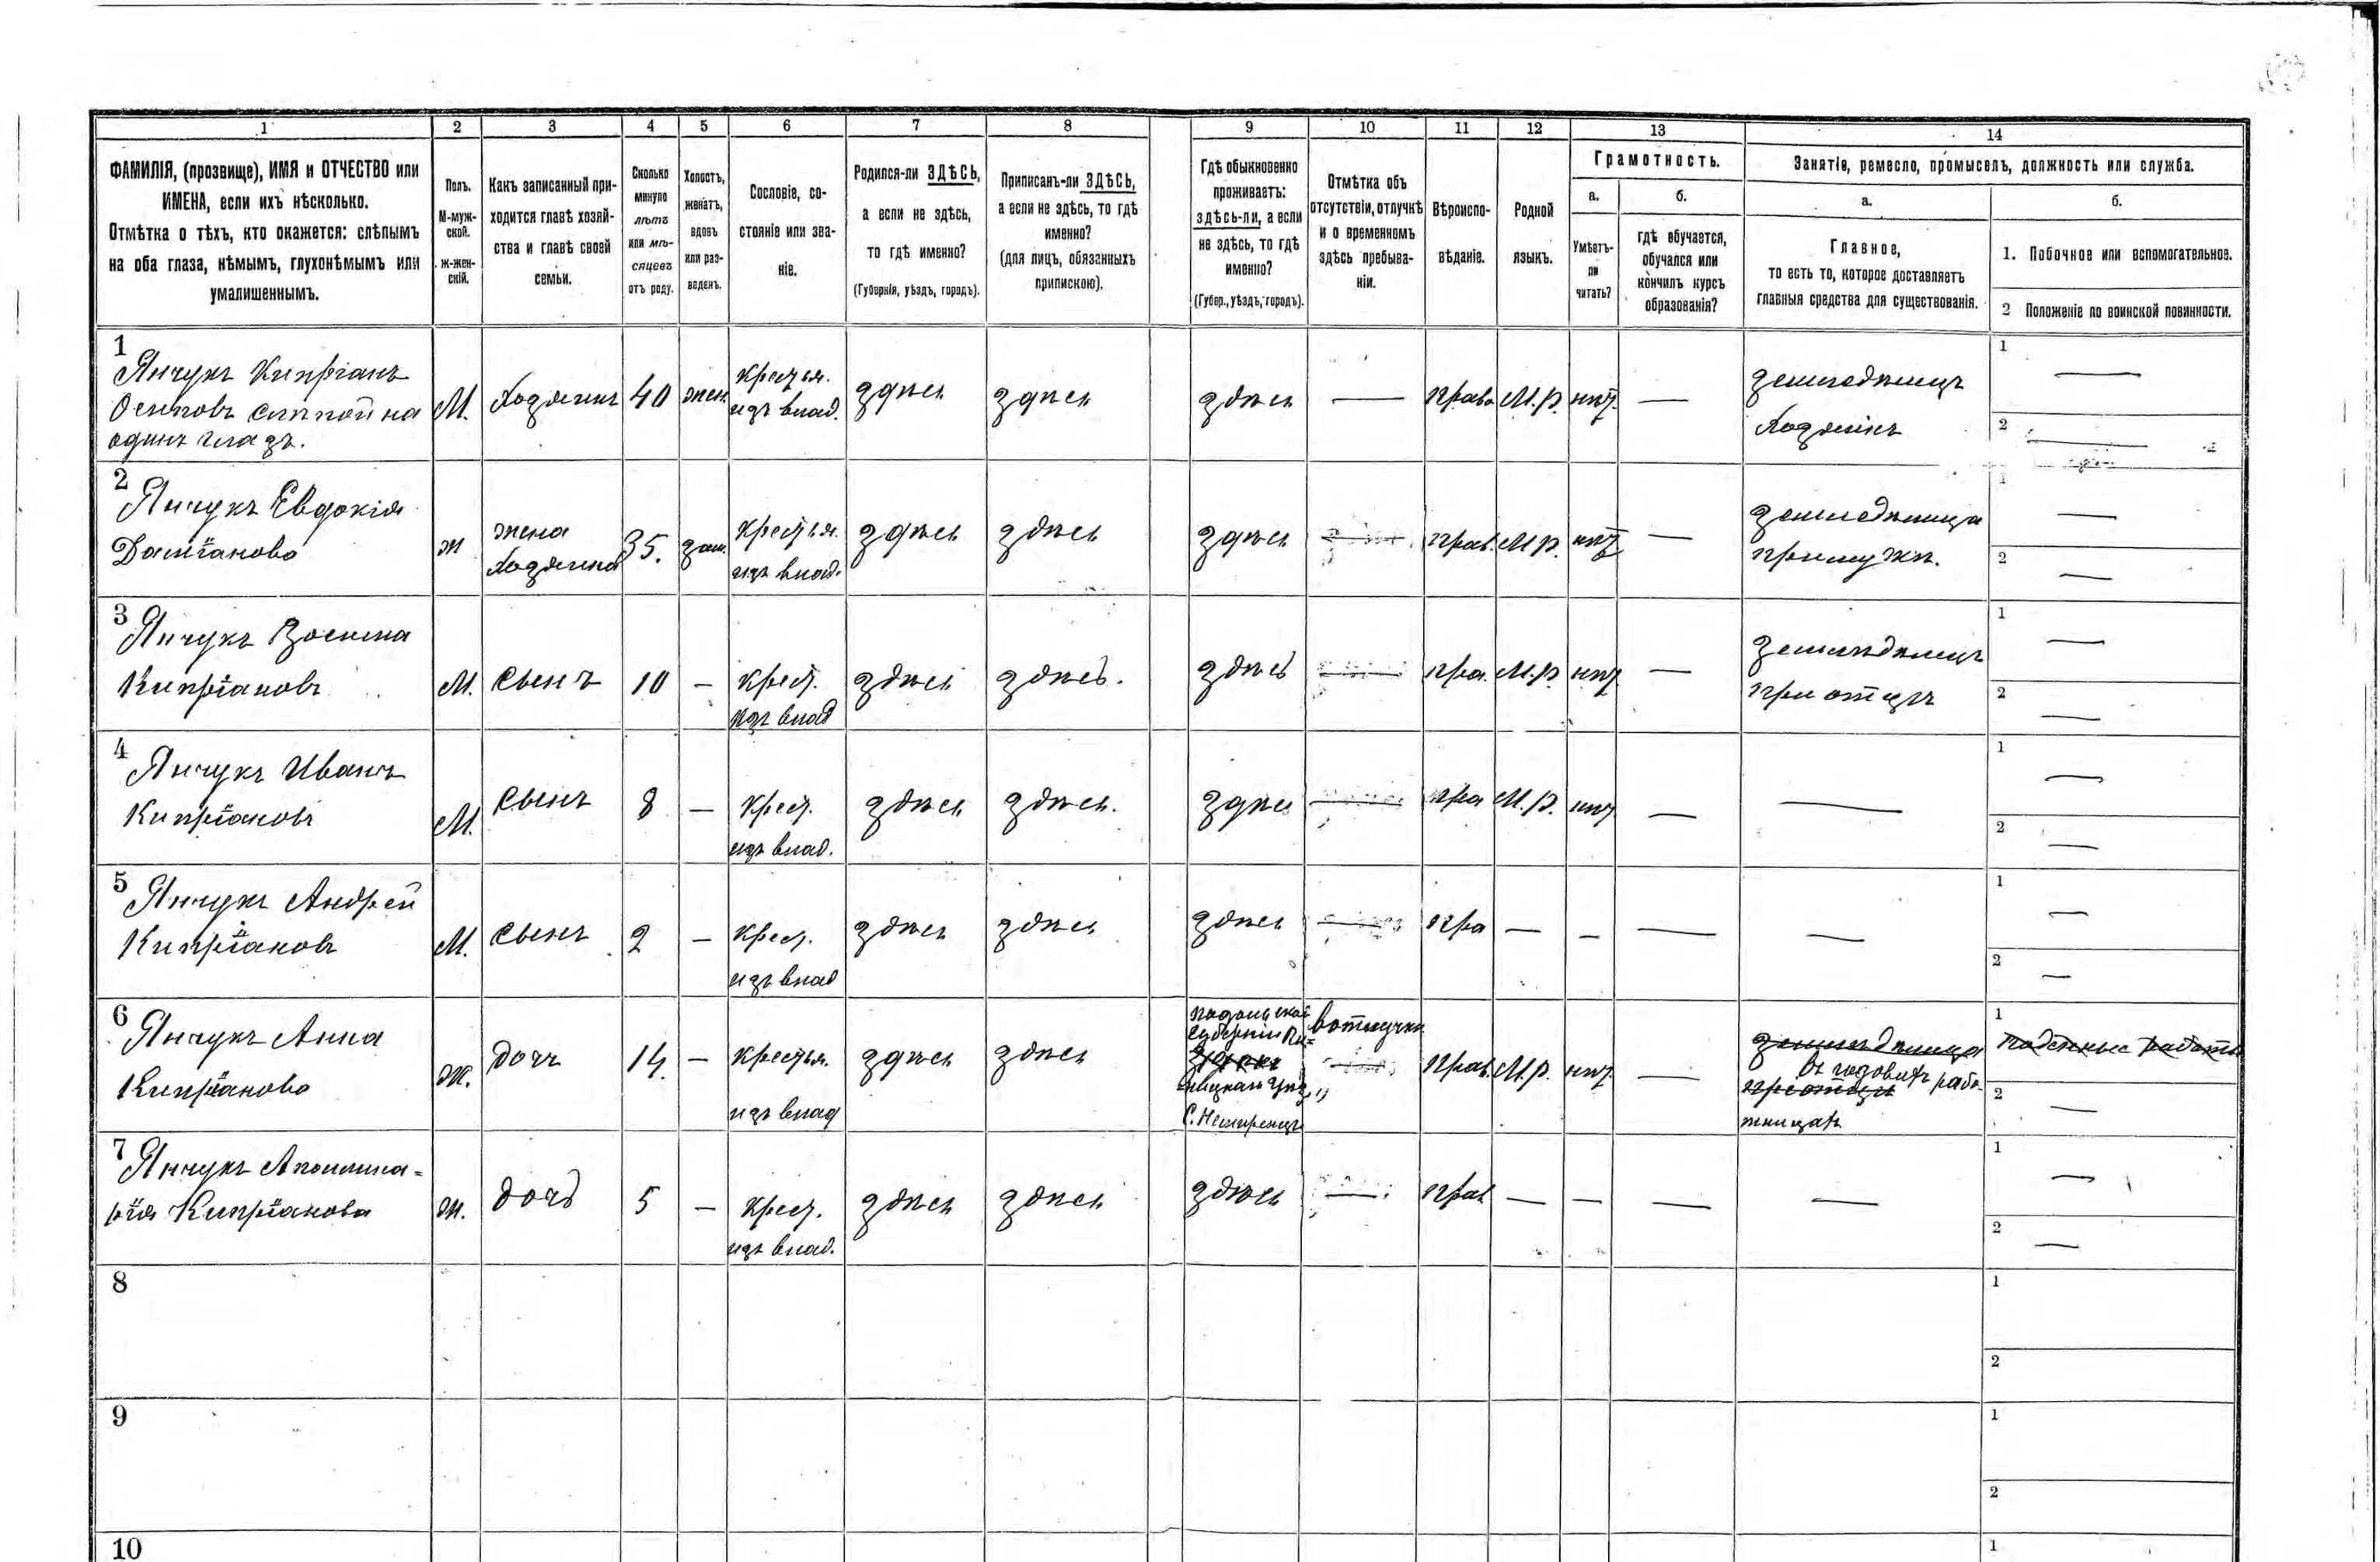 1 2 3 4 5 6 7 8 9 10 11 12 13 14
ФАМИЛІЯ, (прозвище), ИМЯ и ОТЧЕСТВО или
ИМЕНА, если ихъ нѣсколько.
Отмѣтка о тѣхъ, кто окажется: слѣпымъ
на оба глаза, нѣмымъ, глухонѣмымъ или
умалишеннымъ.
Полъ.
М-муж-
ской.
ж-жен-
скій.
Какъ записанный при-
ходится главѣ хозяй-
ства и главѣ своей
семьи.
Сколько
минуло
лѣтъ
или мѣ-
сяцевъ
отъ роду.
Холостъ,
женатъ,
вдовъ
или раз-
веденъ.
Сословіе, со-
стояніе или зва-
ніе.
Родился-ли ЗДѢСЬ,
а если не здѣсь,
то гдѣ именно?
(Губернія, уѣздъ, городъ).
Приписанъ-ли ЗДѢСЬ,
а если не здѣсь, то гдѣ
именно?
(для лицъ, обязанныхъ
припискою).
Гдѣ обыкновенно
проживаетъ:
здѣсь-ли, а если
не здѣсь, то гдѣ
именно?
(Губер., уѣздъ, городъ).
Отмѣтка объ
отсутствіи, отлучкѣ
и о временномъ
здѣсь пребыва-
ніи.
Вѣроиспо-
вѣданіе.
Родной
языкъ.
Грамотность.
а.
Умѣетъ-
ли
читать?
б.
гдѣ обучается,
обучался или
кончилъ курсъ
образованія?
Занятіе, ремесло, промыселъ, должность или служба.
а.
Главное,
то есть то, которое доставляетъ
главныя средства для существованія.
б.
1. Побочное или вспомогательное.
2 Положеніе по воинской повинности.
1
Янчукъ Кипріанъ
Осиповъ слѣпой на
одинъ глазъ.
М.
Хозяинъ
40
жен.
крестья.
изъ влад.
здѣсь
здѣсь
здѣсь
—
Прав.
М.р.
нѣт
—
земледѣлецъ
Хозяинъ
1 —
2 —
2
Янчукъ Евдокія
Даміанова
ж
жена
Хозяина
35.
зам.
крестья.
изъ влад.
здѣсь
здѣсь
здѣсь
—
Прав.
М.р.
нѣт
—
земледѣлица
при мужѣ.
1 —
2 —
3
Янчукъ Зосима
Кипріановъ
М.
сынъ
10
—
крест.
изъ влад
здѣсь
здѣсь.
здѣсь
—
пра.
М.р.
нѣт
—
земледѣлецъ
при отцѣ
1 —
2 —
4
Янчукъ Иванъ
Кипріановъ
М.
сынъ
8
—
крест.
изъ влад.
здѣсь
здѣсь.
здѣсь
—
пра
М.р.
нѣт
—
—
1 —
2 —
5
Янчукъ Андрей
Кипріановъ
М.
сынъ
2
—
крест.
изъ влад
здѣсь
здѣсь
здѣсь
—
пра
—
—
—
—
1 —
2 —
6
Янчукъ Анна
Кипріанова
ж.
дочь
14.
—
крестья.
изъ влад
здѣсь
здѣсь
подольской
Губерніи
здѣсь
в отлучкѣ
Прав.
М.р.
нѣт
—
земледѣлица
въ годовыхъ рабо-
при отцѣ
тницахъ
1 Поденные работы
2 —
7
Янчукъ Аполлина-
рія Кипріанова
ж.
дочь
5
—
крест.
изъ влад.
здѣсь
здѣсь
здѣсь
—
прав
—
—
—
—
1 —
2 —
8
1
2
9
1
2
10
1